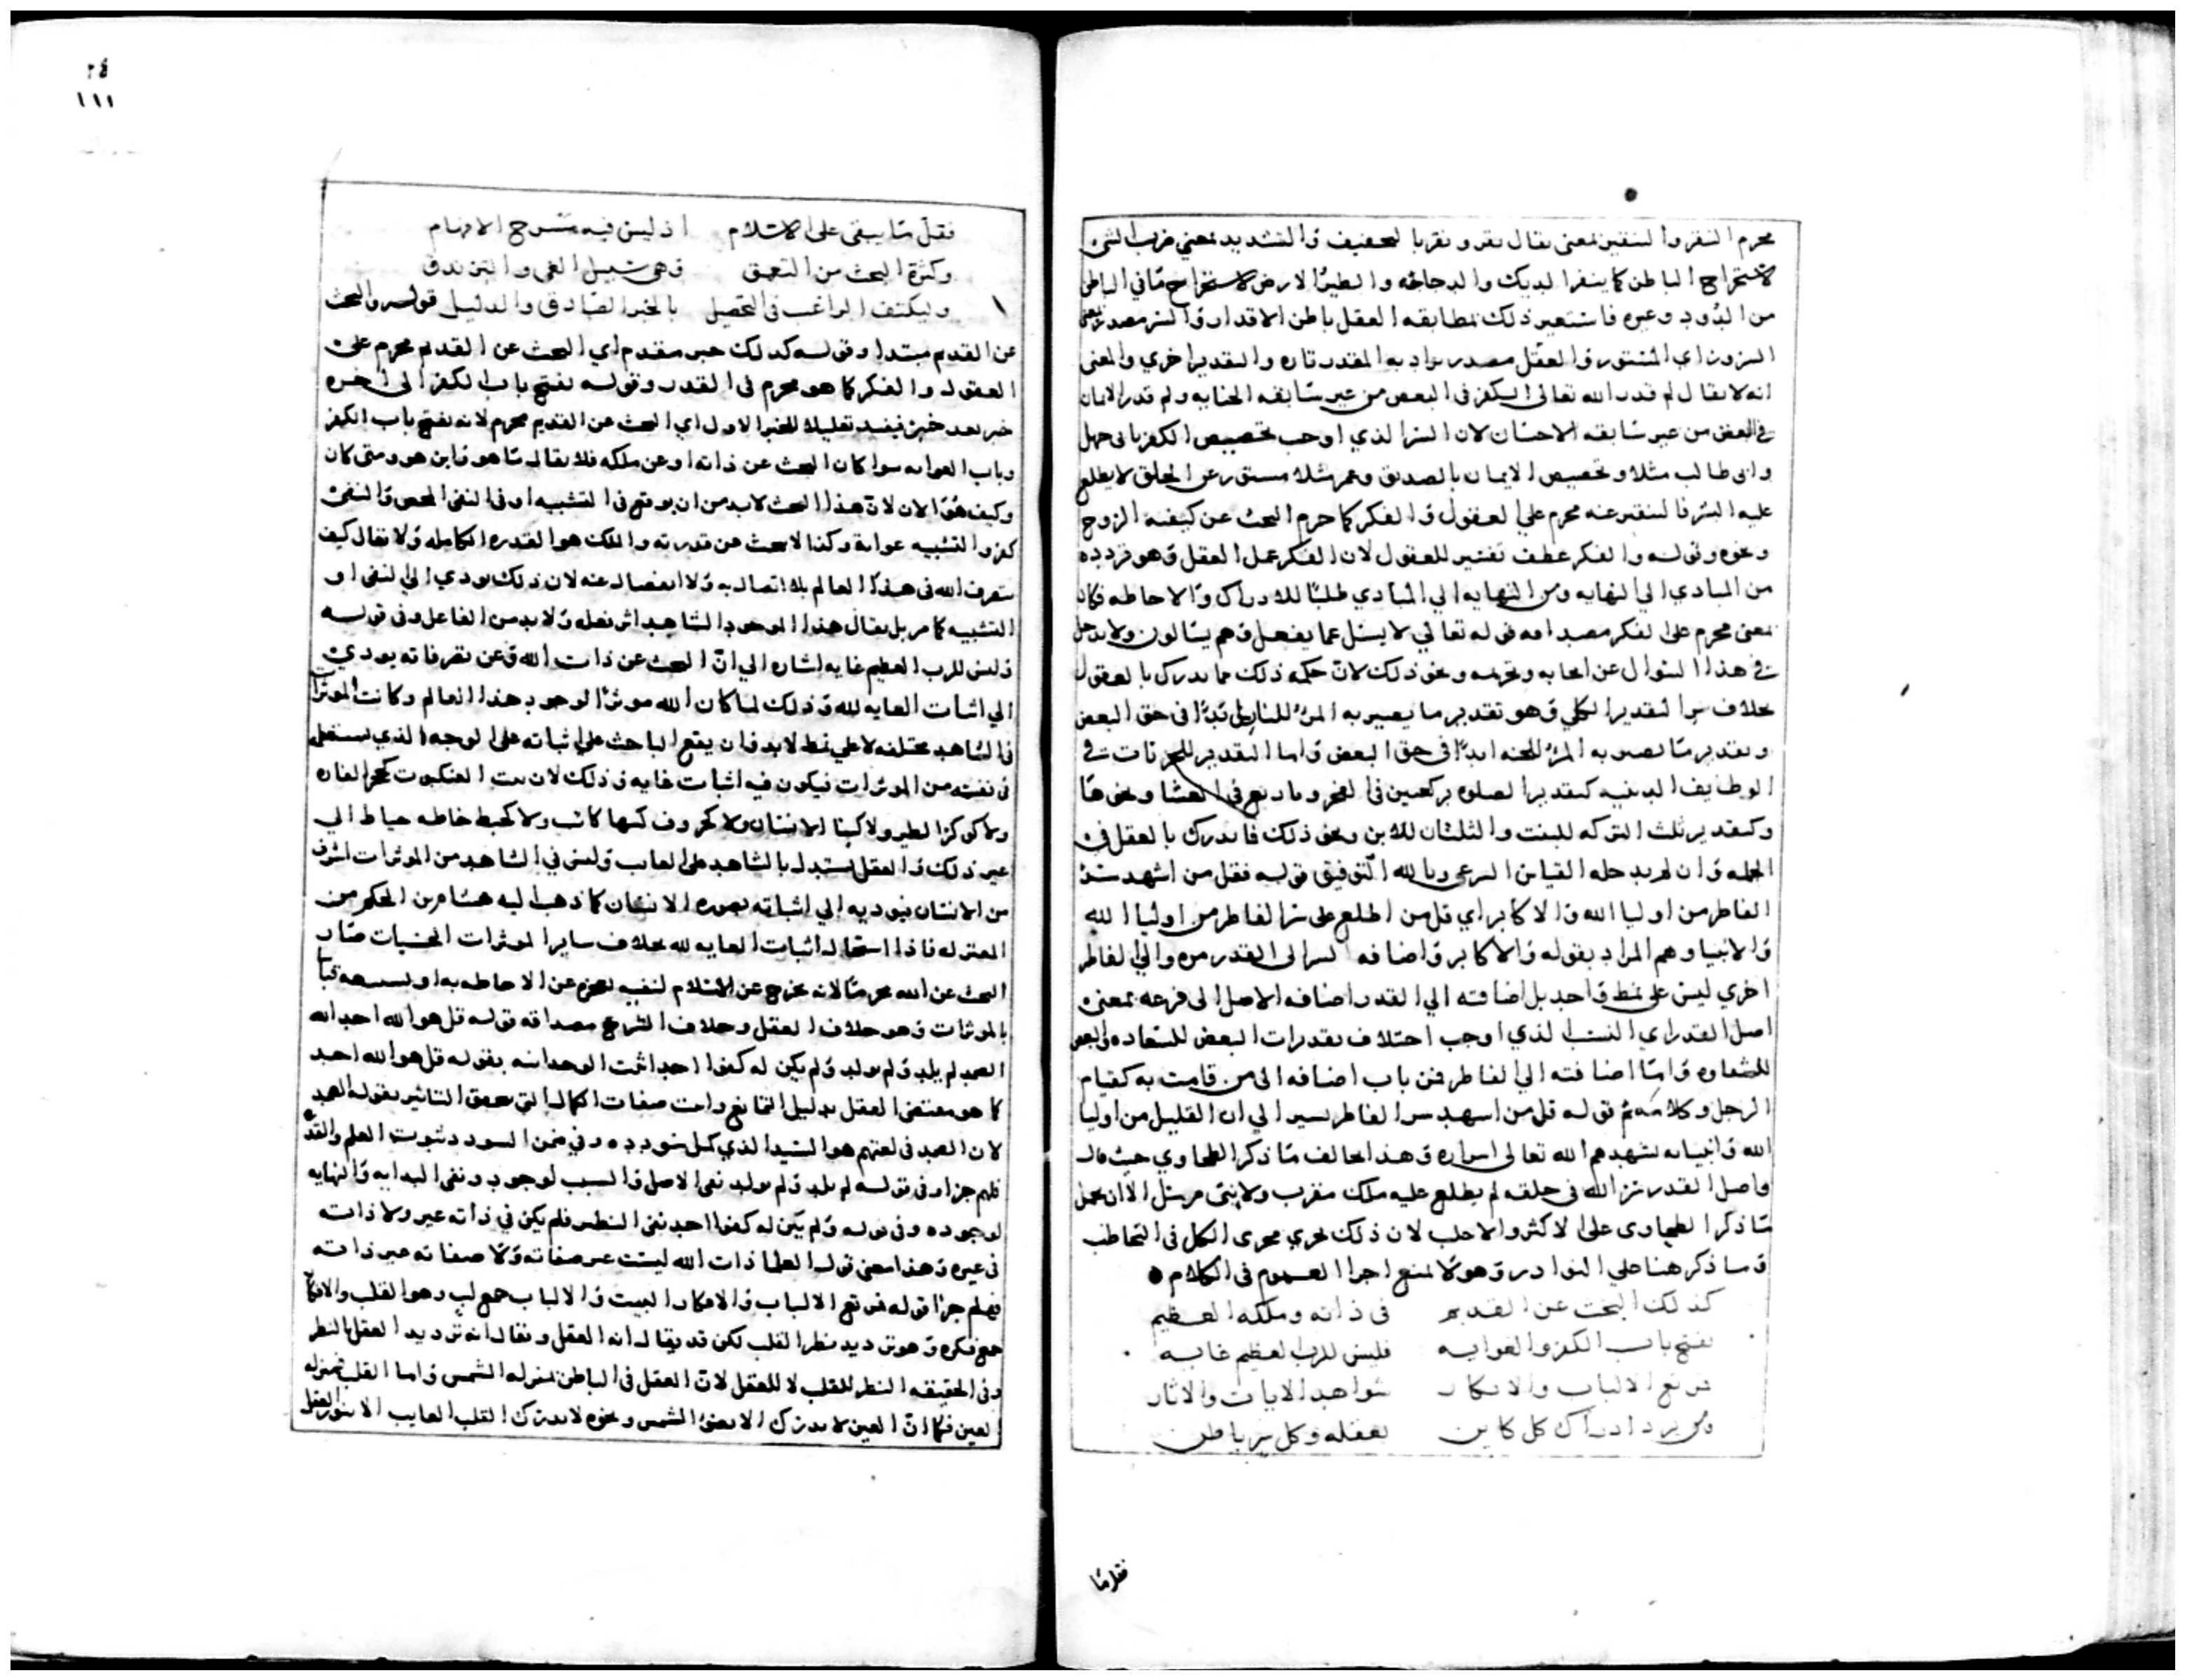 محرم النقر والتنقير بمعنى يقال نقر ونقر بالتخفيف والتشديد بمعنى ضرب الشئ
لاستخراج الباطن كما ينقر الديك والدجاجه والطير الارض لاستخراج ما في الباطن
من الدود وغيره فاستعير ذلك لمطابقه العقل باطن الاقدار والسر مصدر بمعنى
المسرور اي المستور والعقل مصدر يراد به المقدر تاره والتقدير اخري والمعنى
انه لا يقال لم قدر الله تعالى الكفر في البعض من غير سابقه الجنايه ولم قدر الايمان
في البعض من غير سابقه الاحسان لان السر الذي اوجب تخصيص الكفر بابى جهل
وابى طالب مثلا وتخصيص الايمان بالصديق وعمر مثلا مستور عن الخلق لا يطلع
عليه البشر فالتنقير عنه محرم علي العقول والفكر كما حرم البحث عن كيفية الروح
ونحوه وقوله والفكر عطف تفسير للعقول لان الفكر عمل العقل وهو تردده
من المبادي الي النهايه ومن النهايه الي المبادي طلبا للادراك والاحاطه فكان
بمعنى محرم على الفكر مصداقه قوله تعالي لا يسئل عما يفعل وهم يسالون ولا يدخل
في هذا السوال عن ايجابه وتحريمه ونحو ذلك لان حكمة ذلك مما يدرك بالعقول
بخلاف سر التقدير الكلي وهو تقدير ما يصير به المرؤ للنار ابدا في حق البعض
وتقدير ما يصير به المرؤ للجنه ابدا في حق البعض واما التقدير للجزئيات في
الوظايف الدينيه كتقدير الصلوه بركعتين في الفجر وباربع في العشا ونحوها
وكتقدير ثلث التركه للبنت والثلثان للابن ونحو ذلك فما يدرك بالعقل في
الجمله وان لم يدخله القياس الشرعي وبالله التوفيق قوله فقل من اشهد سر
الفاطر من اوليا الله والاكابر اي قل من اطلع على سر الفاطر من اوليا الله
والانبيا وهم المراد بقوله والاكابر واضافه السر الى القدر مره والي الفاطر
اخري ليس على نمط واحد بل اضافته الي القدر اضافه الاصل الى فرعه بمعنى
اصل القدر اي السبب الذي اوجب اختلاف تقديرات البعض للسعاده والبعض
للشقاوه واما اضافته الي الفاطر فمن باب اضافه الى من قامت به كقيام
الرجل وكلامه ثم قوله قل من اشهد سر الفاطر يشير الي ان القليل من اوليا
الله وانبيائه يشهدهم الله تعالى اسراره وهذا يخالف ما ذكر الطحاوي حيث قال
واصل القدر سر الله في خلقه لم يطلع عليه ملك مقرب ولا نبى مرسل الا ان يحمل
ما ذكر الطحاوى على الاكثر والاغلب لان ذلك يجري مجرى الكل في التخاطب
وما ذكر هنا علي النوادر وهو لا يمنع اجرا العموم في الكلام
كذلك البحث عن القديم في ذاته وملكه العظيم
يفتح باب الكفر والغوايه فليس للرب العظيم غايه
فرتع الالباب والافكار شواهد الايات والاثار
ومن يرد ادراك كل كاين بعقله وكل سر باطن
فقل ما
٢٤
١١١
فقل ما يبقى على الاسلام اذ ليس فيه مسرح الافهام
وكثرة البحث من التعمق وهى سبيل الغى والتزندق
وليكتف الراغب في التحصيل بالخبر الصادق والدليل قوله والبحث
عن القديم مبتدا وقوله كذلك خبر مقدم اي البحث عن القديم محرم على
العقول والفكر كما هو محرم في القدر وقوله يفتح باب الكفر الى اخره
خبر بعد خبر يفيد تعليلا للخبر الاول اي البحث عن القديم محرم لانه يفتح باب الكفر
وباب الغوايه سوا كان البحث عن ذاته او عن ملكه فلا يقال ما هو واين هو ومتى كان
وكيف هو الان لان هذا البحث لا بد من ان يوقع في التشبيه او في النفي المحض والنفي
كفر والتشبيه غوايه وكذا لا يبحث عن قدرته والملك هو القدره الكامله ولا يقال كيف
يتصرف الله في هذا العالم بلا اتصال به ولا انفصال عنه لان ذلك يودي الي النفي او
التشبيه كما مر بل يقال هذا الموجود الشاهد اثر فعله ولا بد من الفاعل وفي قوله
فليس للرب العظيم غايه اشاره الي ان البحث عن ذات الله وعن تصرفاته يودي
الي اثبات الغايه لله وذلك لما كان الله موثرا لوجود هذا العالم وكانت الموثرات
في الشاهد مختلفه لا علي نمط لا بد وان يقع الباحث علي اثباته على الوجه الذي يستعمل
في نفسه من الموثرات فيكون فيه اثبات غايه وذلك لان بيت العنكبوت كجحر الفاره
ولا كوكر الطير ولا كبنا الانسان ولا كحروف كتبها كاتب ولا كخيط خاطه خياط الي
غير ذلك والعقل يستدل بالشاهد على الغايب وليس في الشاهد من الموثرات اشرف
من الانسان فيوديه الي اثباته بصوره الانسان كما ذهب اليه هشام بن الحكم من
المعتزله فاذا استحال اثبات الغايه لله بخلاف ساير الموثرات الحسيات صار
البحث عن الله محرما لانه يخرج عن الاسلام لنفيه بعجزه عن الاحاطه به او تشبيهه قياسا
بالموثرات وهو خلاف العقل وخلاف الشرع مصداقه قوله قل هو الله احد الله
الصمد لم يلد ولم يولد ولم يكن له كفوا احد اثبت الوحدانيه بقوله قل هو الله احد
كما هو مقتضى العقل بدليل التمانع واثبت صفات الكمال التي بتحقق التاثير بقوله الصمد
لان الصمد في لغتهم هو السيد الذي كمل سودده وفي ضمن السودد ثبوت العلم والقدره
فلهم جرا وفي قوله لم يلد ولم يولد نفى الاصل والسبب لوجود ونفى البدايه والنهايه
لوجوده وفي قوله ولم يكن له كفوا احد نفى النظير فلم يكن في ذاته غيره ولا ذاته
في غيره وهذا معنى قول العلما ذات الله ليست غير صفاته ولا صفاته غير ذاته
فهلم جرا قوله فرتع الالباب والافكار البيت والالباب جمع لب وهو القلب والافكار
جمع فكره وهو ترديد نظر القلب لكن قد يقال انه العقل ويقال انه ترديد العقل بالنظر
وفي الحقيقه النظر للقلب لا للعقل لان العقل في الباطن بمنزله الشمس واما القلب بمنزله
العين فكما ان العين لا يدرك الا بضوء الشمس ونحوه لا يدرك القلب الغايب الا بنور العقل